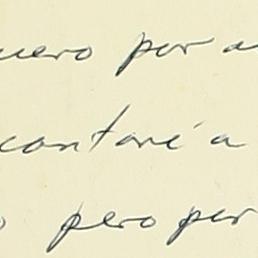 uero por a
contaré a
o pero per